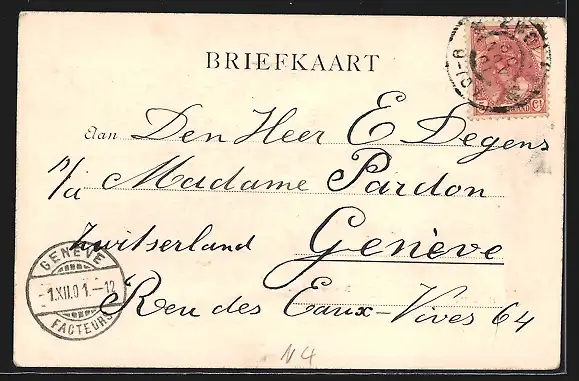 BRIEFKAART
Aan Den Heer E Degens
p/a Madame Pardon
Zwitserland Genève
Rue des Eaux-Vives 64
GENÈVE
-1.XII.01.-12
FACTEURS
N4